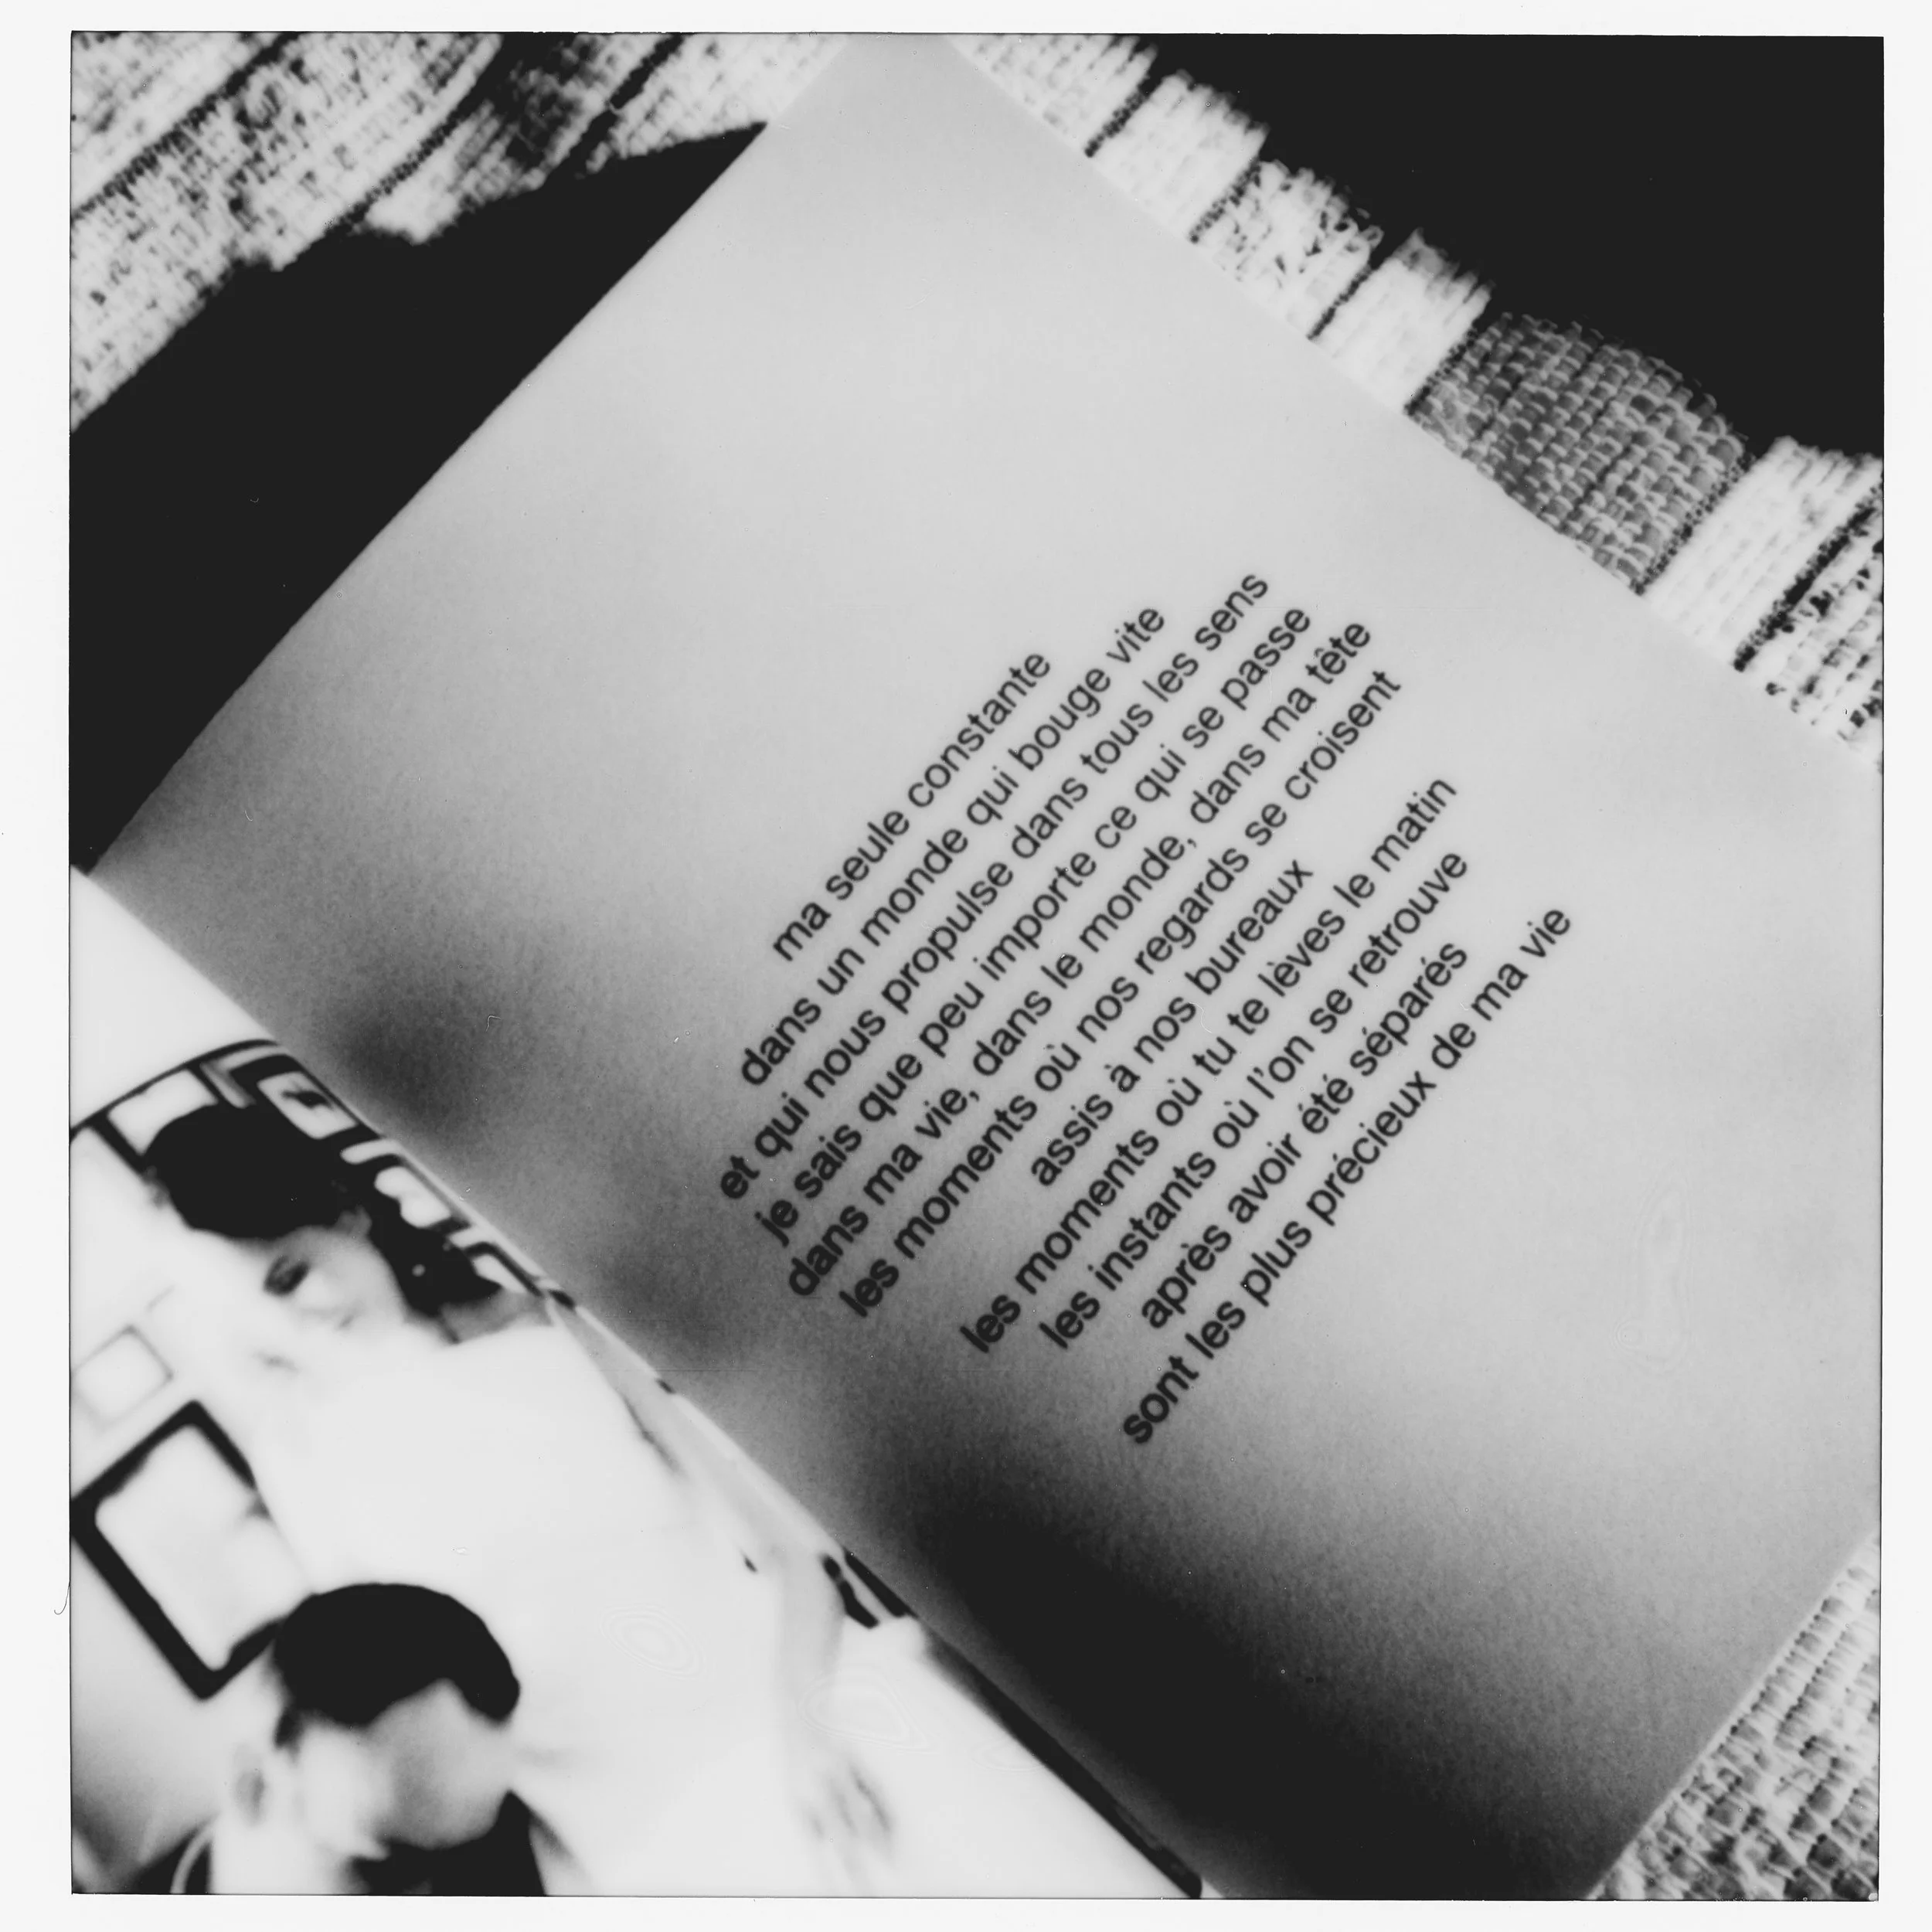 ma seule constante
dans un monde qui bouge vite
et qui nous propulse dans tous les sens
je sais que peu importe ce qui se passe
dans ma vie, dans le monde, dans ma tête
les moments où nos regards se croisent
assis à nos bureaux
les moments où tu te lèves le matin
les instants où l'on se retrouve
après avoir été séparés
sont les plus précieux de ma vie